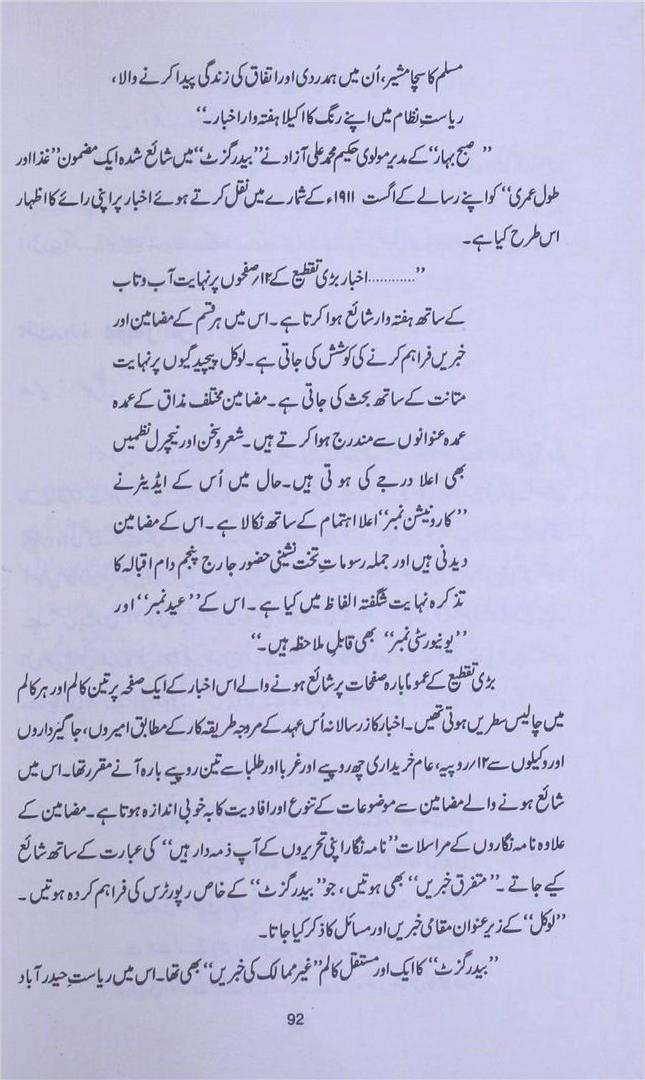 مسلم کا سچا مشیر، اُن میں ہمدردی اور اتفاق کی زندگی پیدا کرنے والا،
ریاستِ نظام میں اپنے رنگ کا اکیلا ہفتہ وار اخبار۔‘‘
’’صبح بہار‘‘ کے مدیر مولوی حکیم محمد علی آزاد نے ’’بیدر گزٹ‘‘ میں شائع شدہ ایک مضمون ’’غذا اور
طول عمری‘‘ کو اپنے رسالے کے اگست ۱۹۱۱ء کے شمارے میں نقل کرتے ہوئے اخبار پر اپنی رائے کا اظہار
اس طرح کیا ہے۔
’’...........اخبار بڑی تقطیع کے ۱۲؍صفحوں پر نہایت آب و تاب
کے ساتھ ہفتہ وار شائع ہوا کرتا ہے۔ اس میں ہر قسم کے مضامین اور
خبریں فراہم کرنے کی کوشش کی جاتی ہے۔ لوکل پیچیدگیوں پر نہایت
متانت کے ساتھ بحث کی جاتی ہے۔ مضامین مختلف مذاق کے عمدہ
عمدہ عنوانوں سے مندرج ہوا کرتے ہیں۔ شعر و سخن اور نیچرل نظمیں
بھی اعلا درجے کی ہوتی ہیں۔ حال میں اُس کے ایڈیٹر نے
’’کارونیشن نمبر‘‘ اعلا اہتمام کے ساتھ نکالا ہے۔ اس کے مضامین
دیدنی ہیں اور جملہ رسوماتِ تخت نشینی حضور جارج پنجم دام اقبالہ کا
تذکرہ نہایت شگفتہ الفاظ میں کیا ہے۔ اس کے ’’عید نمبر‘‘ اور
’’یونیورسٹی نمبر‘‘ بھی قابلِ ملاحظہ ہیں۔‘‘
بڑی تقطیع کے عموماً بارہ صفحات پر شائع ہونے والے اس اخبار کے ایک صفحہ پر تین کالم اور ہر کالم
میں چالیس سطریں ہوتی تھیں۔ اخبار کا زر سالانہ اُس عہد کے مروجہ طریقہ کار کے مطابق امیروں، جاگیرداروں
اور وکیلوں سے ۱۲؍روپیہ، عام خریداری چھ روپے اور غربا اور طلبا سے تین روپے بارہ آنے مقرر تھا۔ اس میں
شائع ہونے والے مضامین سے موضوعات کے تنوع اور افادیت کا بہ خوبی اندازہ ہوتا ہے۔ مضامین کے
علاوہ نامہ نگاروں کے مراسلات ’’نامہ نگار اپنی تحریروں کے آپ ذمہ دار ہیں‘‘ کی عبارت کے ساتھ شائع
کیے جاتے۔ ’’متفرق خبریں‘‘ بھی ہوتیں، جو ’’بیدر گزٹ‘‘ کے خاص رپورٹرس کی فراہم کردہ ہوتیں۔
’’لوکل‘‘ کے زیر عنوان مقامی خبریں اور مسائل کا ذکر کیا جاتا۔
’’بیدر گزٹ‘‘ کا ایک اور مستقل کالم ’’غیر ممالک کی خبریں‘‘ بھی تھا۔ اس میں ریاستِ حیدرآباد
92